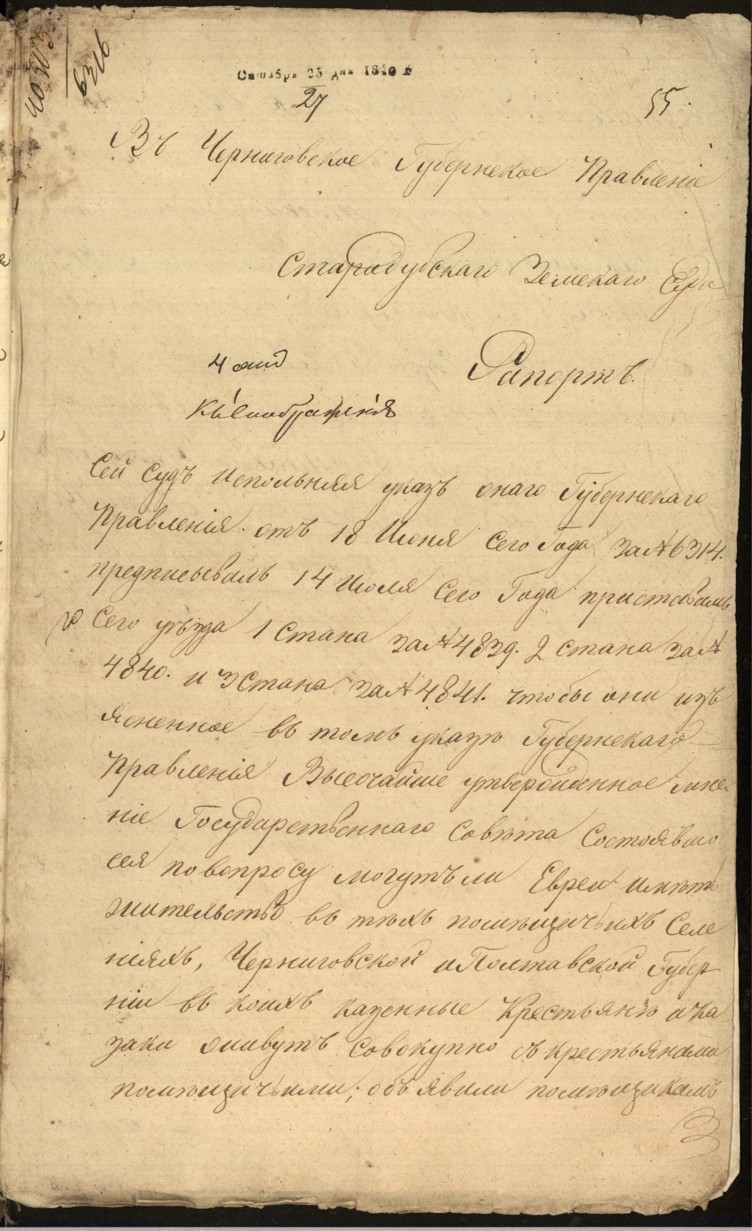 Сентября 23 дня 1840 г
27
55.
6316
Въ Черниговское Губернское Правленіе
Стародубскаго Земскаго Суда
Рапортъ.
4
Сей Судъ исполняя указъ онаго Губернскаго
Правленія отъ 18 Июня сего Года за № 6314.
предписывалъ 14 Июля сего Года приставамъ
сего уѣзда 1 Стана за № 4839. 2 стана за №
4840. и 3 Стана за № 4841. чтобы они изъ
ясненное въ томъ указѣ Губернскаго
Правленія Высочайше утвержденное мнѣ
ніе Государственнаго Совѣта Состоявше
еся по вопросу могутъ ли Евреи имѣть
жительство въ тѣхъ помѣщичьихъ Селе
ніяхъ, Черниговской и Полтавской Губер
ніи въ коихъ казенные Крестьяне и ка
заки живутъ совокупно съ крестьянами
помѣщичьими; объявили помѣщикамъ